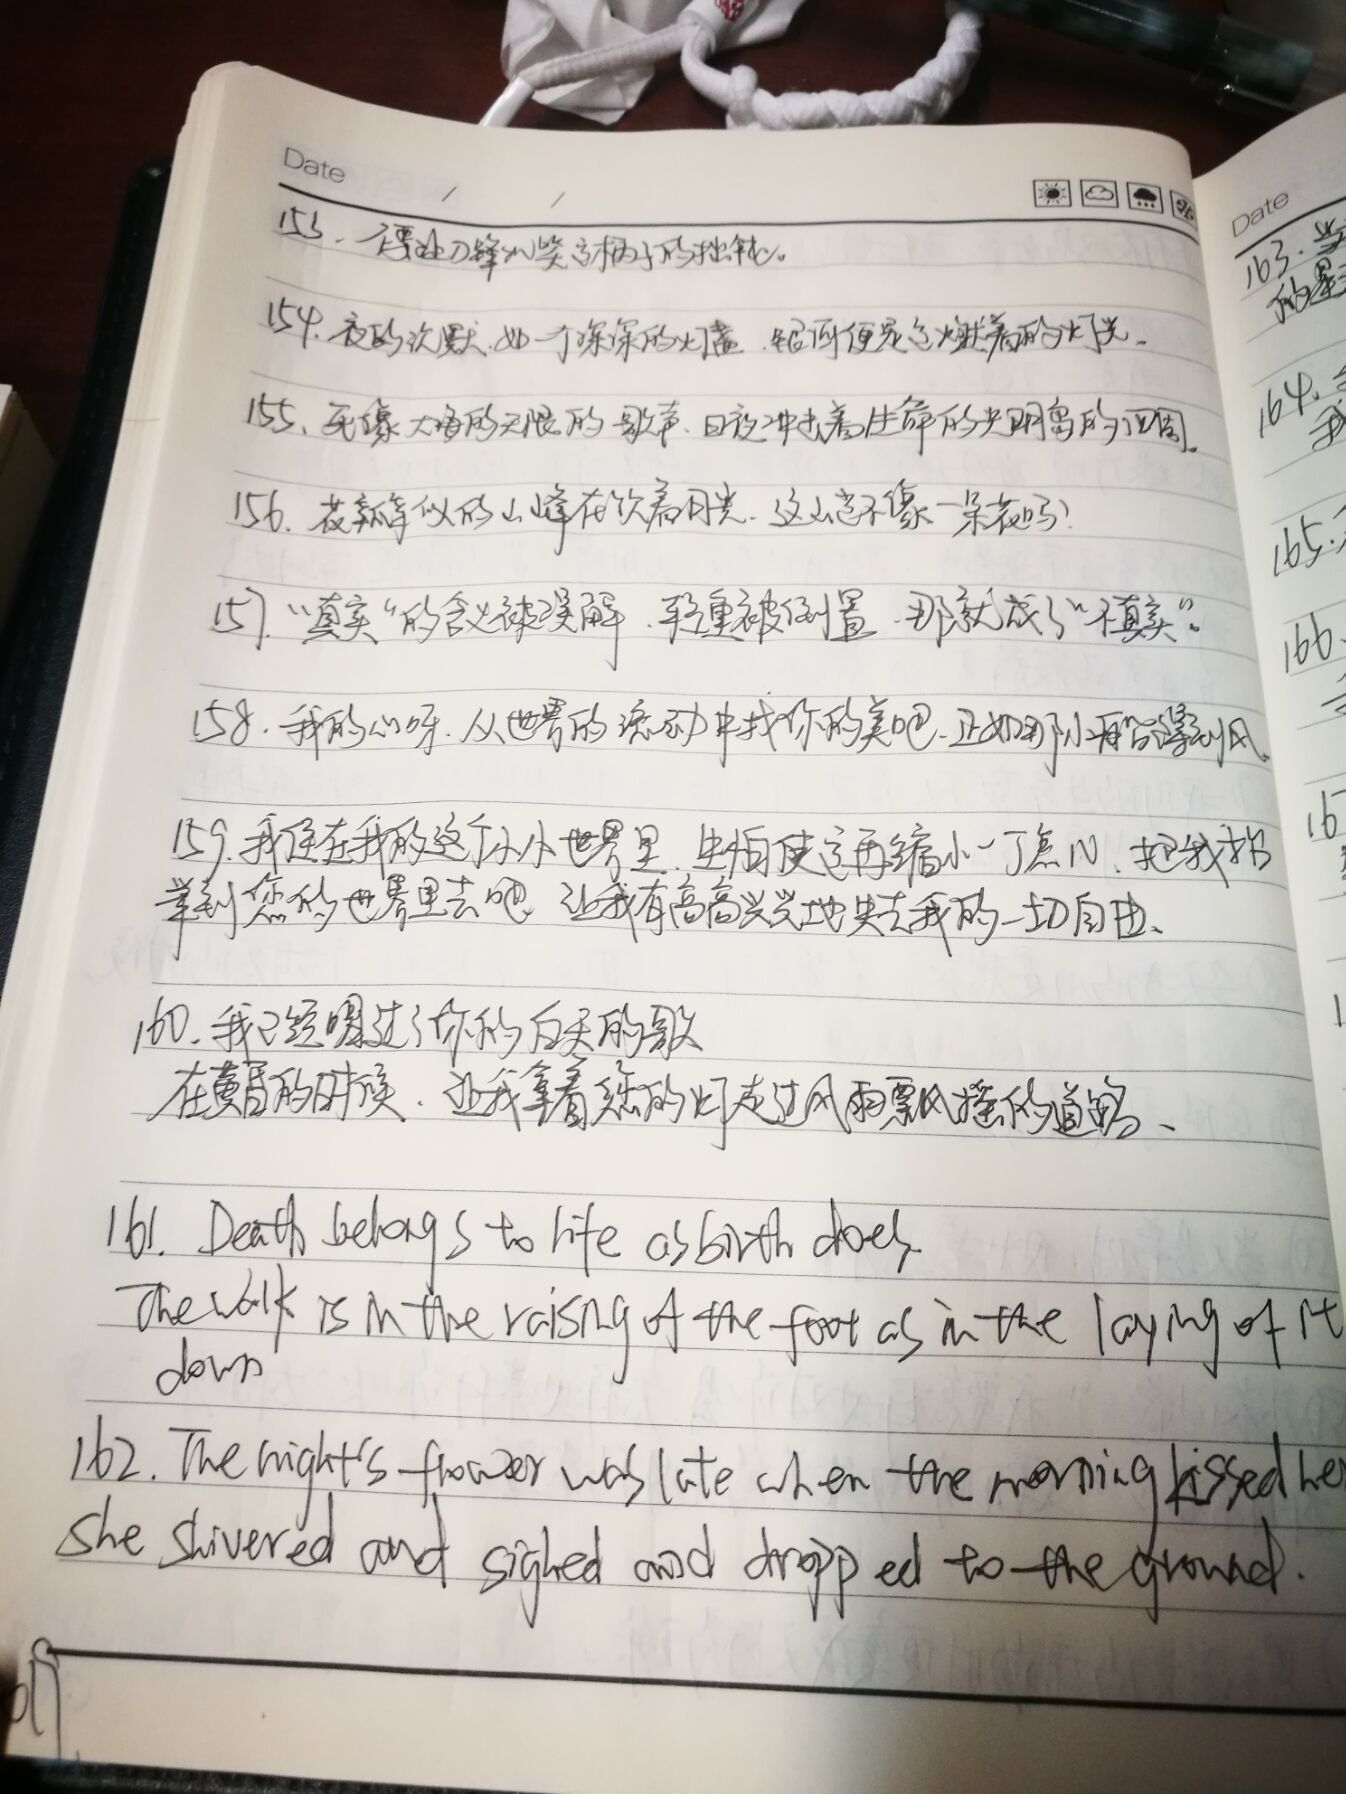 Date / /
153. 不要让刀锋讥笑它柄子的拙钝。
154. 夜的沉默、如一个深深的灯盏、银河便是它燃着的灯光。
155. 死像大海的无限的歌声、日夜冲击着生命的光明岛的四周。
156. 花瓣似的山峰在饮着日光、这山岂不像一朵花吗？
157. “真实”的含义被误解、轻重被倒置、那就成了“不真实”。
158. 我的心呀、从世界的流动中找你的美吧、正如那小船得到风
159. 我住在我的这个小小世界里、生怕使它再缩小一丁点儿、把我抬
举到您的世界里去吧、让我有高高兴兴地失去我的一切自由、
160. 我已经唱过了你的白天的歌
在黄昏的时候、让我拿着您的灯走过风雨飘摇的道路、
161. Death belongs to life as birth does.
The walk is in the raising of the foot as in the laying of it
down
162. The night's flower was late when the morning kissed her
she shivered and sighed and dropped to the ground.
Date
163.
的星
164.
我
165.
166.